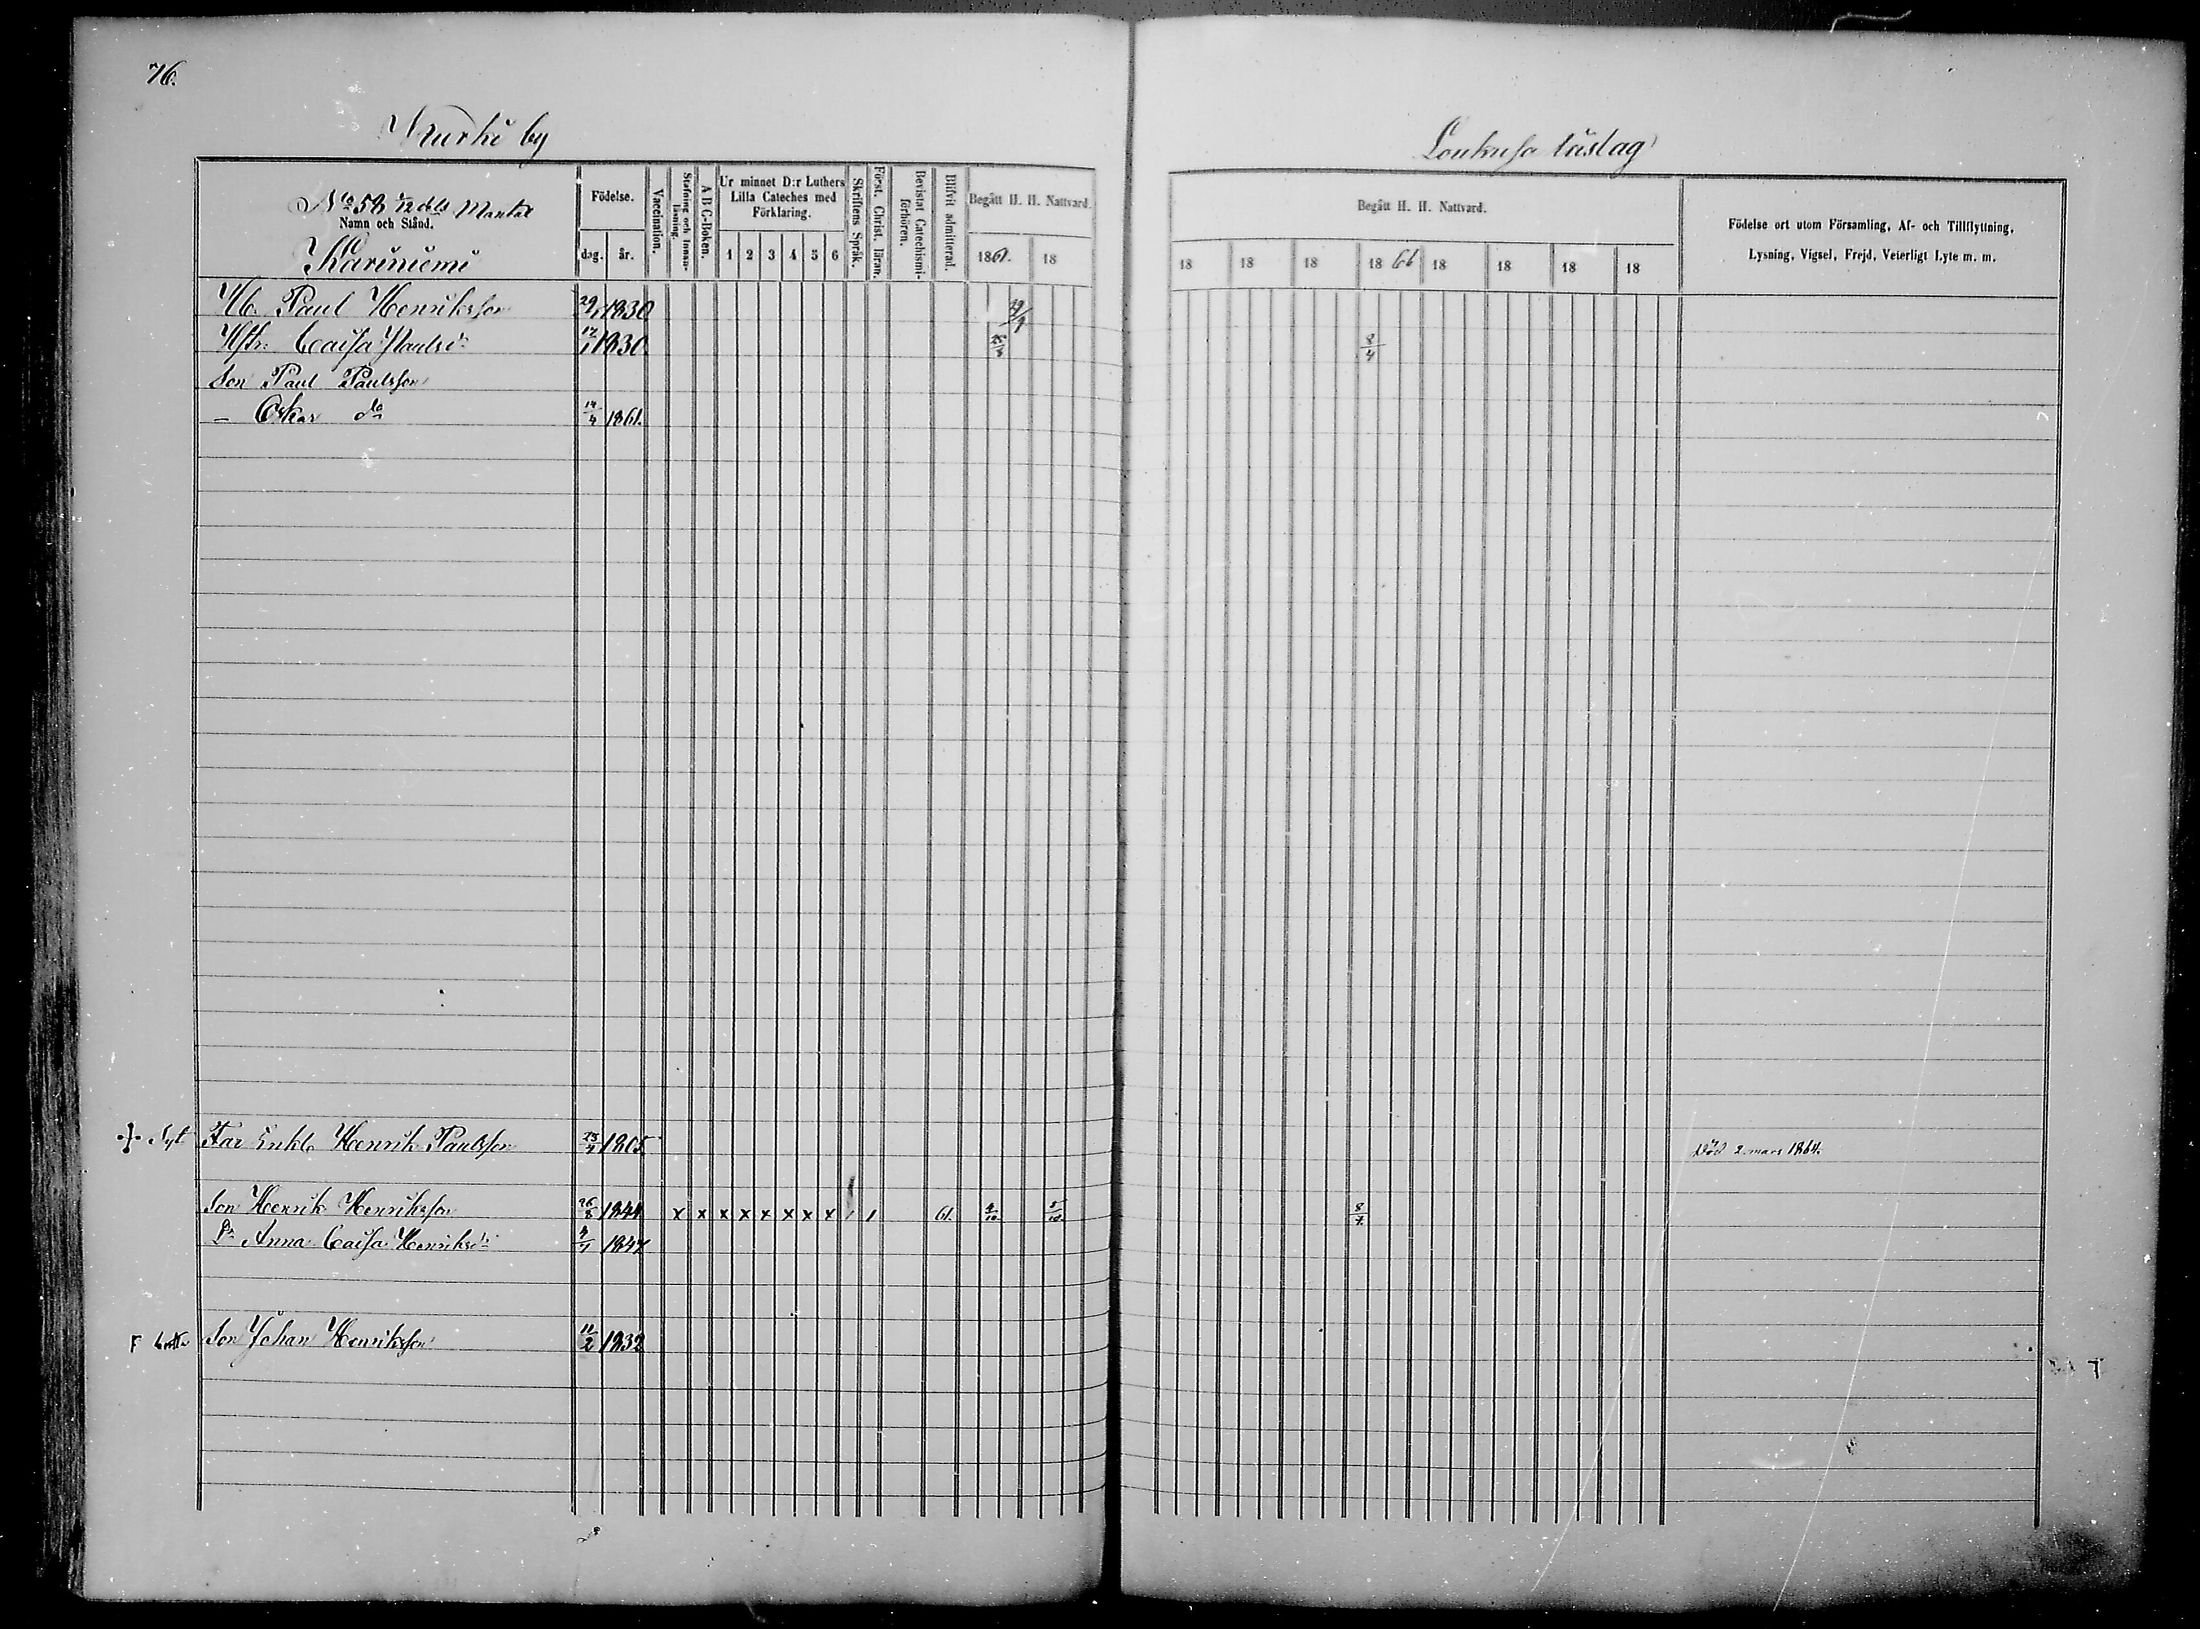 76.
Kurki by
Loukusa läslag
No 58 1/12 dels Mantal
Namn och Stånd.
Kariniemi
Födelse.
dag. år.
Vaccination.
Stafning och Innanläsning.
A B C-Boken.
Ur minnet D:r Luthers Lilla Cateches med Förklaring.
1 2 3 4 5 6
Skriftens Språk.
Först. Christ. läran.
Bevistat Catechismiförhören.
Blifvit admitterad.
Begått H. H. Nattvard.
1861. 18
Begått H. H. Nattvard.
18 18 18 18 61 18 18 18 18
Födelse ort utom Församling, Af- och Tillflyttning,
Lysning, Vigsel, Frejd, Veterligt Lyte m. m.
Hb. Paul Henriksson 1830
Hstr. Caisa Paulsd:r 1830 8/4
Son Paul Paulsson
— Oskar do 14/4 1861.
Far Enkl. Henrik Paulsson 23/4 1805 Död 2 mars 1864.
Son Henrik Henriksson 26/8 1844 x x x x x x x x 1 1 61. 4/10 5/10 8/7
Dr Anna Caisa Henriksd:r 1847
Son Johan Henriksson 11/2 1832